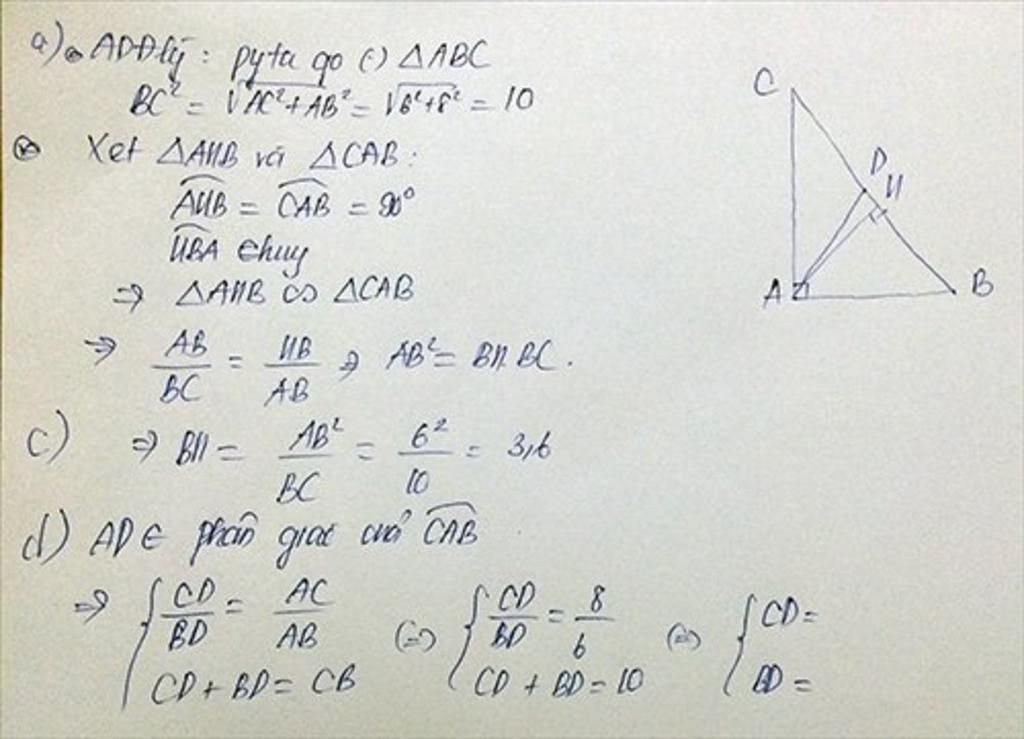 a) • ADĐlý : pyta go (-) △ABC
BC² = √AC² + AB² = √6²+8² = 10
⊗ Xet △AHB và △CAB :
AHB = CAB = 90°
HBA chug
=> △AHB ∽ △CAB
=> AB/BC = HB/AB => AB² = BH. BC.
c) => BH = AB²/BC = 6²/10 = 3,6
d) AD ∈ phân giac cuả CAB
=> { CD/BD = AC/AB (=) { CD/BD = 8/6 (=) { CD =
CD + BD = CB CD + BD = 10 BD =
C
D
H
A B